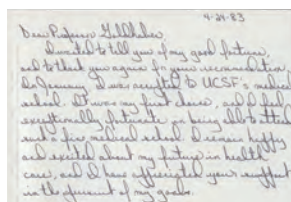 4-24-83
Dear Professor Goldhaber,
I wanted to tell you of my good fortune,
and to thank you again for your recommendation.
In January I was accepted to UCSF's medical
school. It was my first choice, and I feel
exceptionally fortunate in being able to attend
such a fine medical school. I am happy
and excited about my future in health
care, and I have appreciated your support
in the pursuit of my goals.